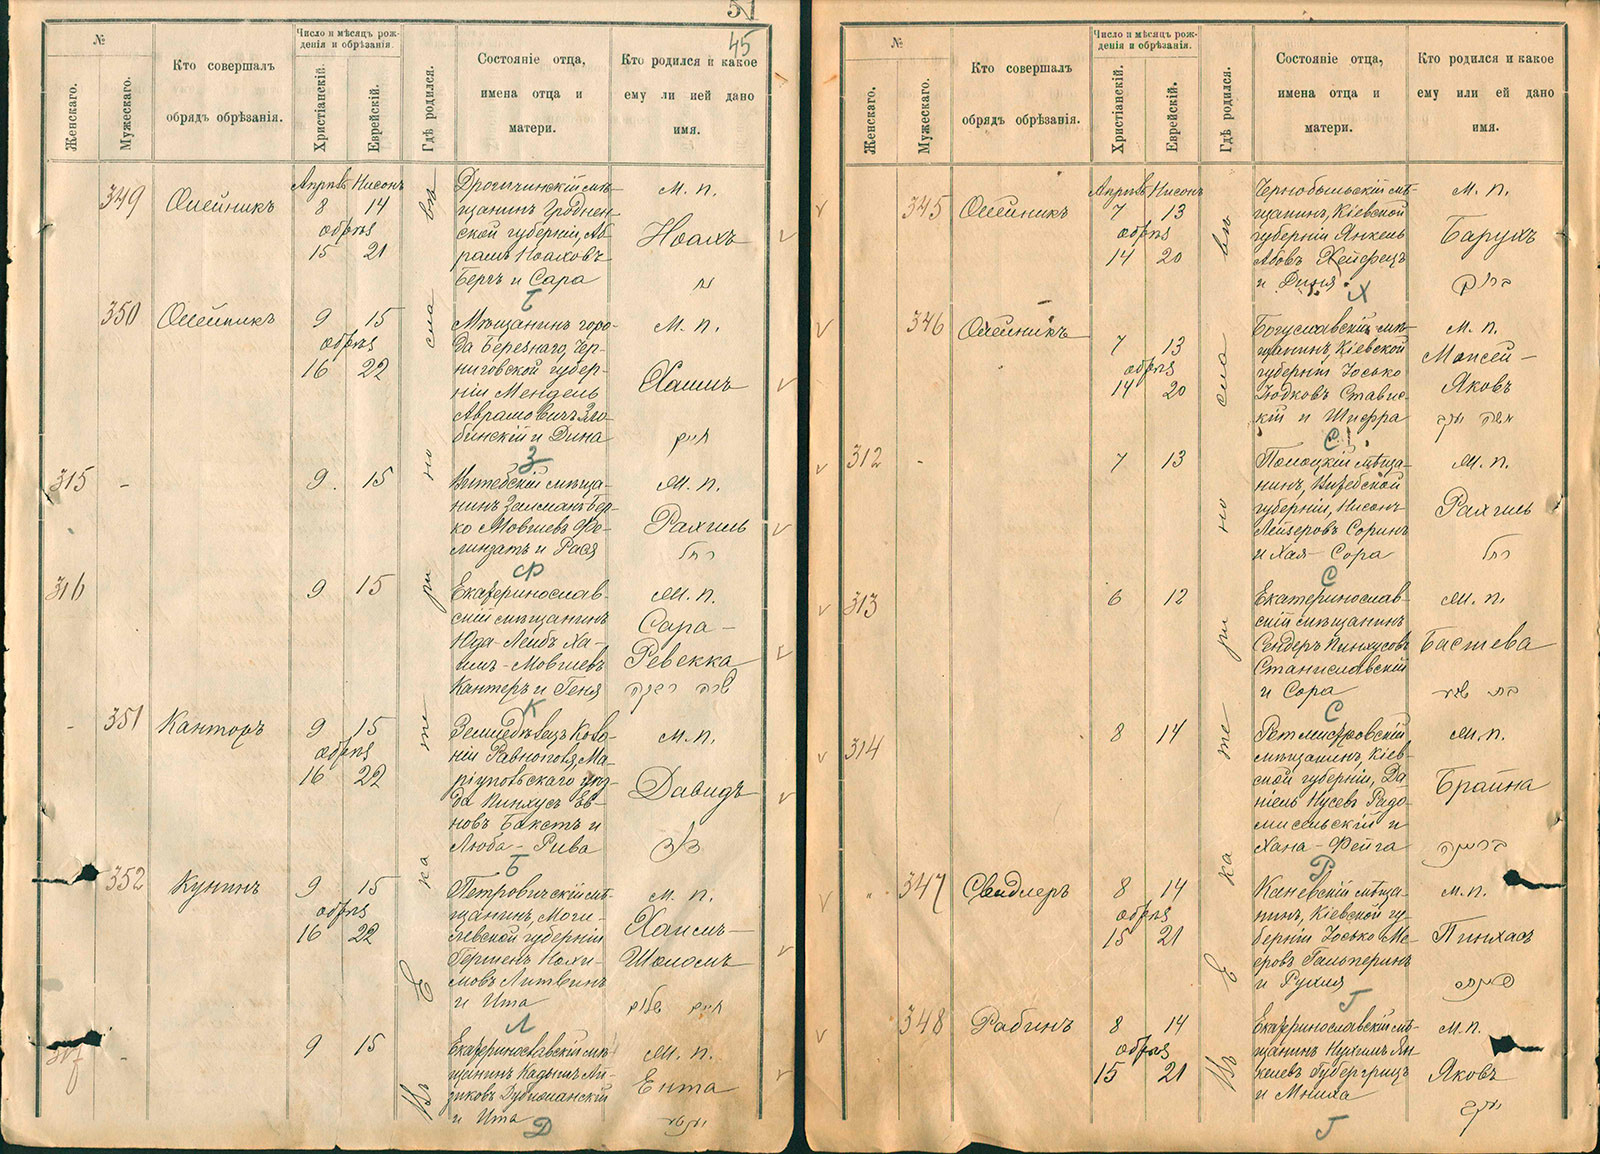 51
45
№
Женскаго.
Мужескаго.
Кто совершалъ
обрядъ обрѣзанія.
Число и мѣсяцъ рож-
денія и обрѣзанія.
Христіанскій.
Еврейскій.
Гдѣ родился.
Состояніе отца,
имена отца и
матери.
Кто родился и какое
ему ли ией дано
имя.
въ Екатеринославѣ
349
Олейникъ
Апрѣль Нисонъ
8 14
обрѣз
15 21
Дрогичинскій мѣ-
щанинъ Гроднен-
ской губерніи, Аб-
рамъ Ноаховъ
Бергъ и Сара
Б
М. п.
Ноахъ
נח
350
Олейникъ
9 15
обрѣз
16 22
Мѣщанинъ горо-
да Березнаго, Чер-
ниговской губер-
ніи Мендель
Аврамовичъ Зло-
бинскій и Дина
З
М. п.
Хаимъ
חיים
315
-
9 15
Витебскій мѣща-
нинъ Залманъ-Бер-
ко Мовшевъ
и Рася
Ф
М. п.
Рахиль
רחל
316
9 15
Екатеринослав-
скій мѣщанинъ
Юда-Лейбъ Ха-
имъ-Мовшевъ
Канторъ и Геня
К
М. п.
Сара-
Ревекка
שרה רבקה
351
Канторъ
9 15
обрѣз
16 22
Земледѣлецъ Коло-
ніи Равнополь, Ма-
ріупольскаго уѣз-
да Пинхусъ
Бакстъ и
Люба-Рива
Б
М. п.
Давидъ
דוד
352
Кунинъ
9 15
обрѣз
16 22
Петровичскій мѣ-
щанинъ, Моги-
левской губерніи
Гершенъ Нохи-
мовъ Литвинъ
и Ита
Л
М. п.
Хаимъ-
Шоломъ
חיים שלום
317
-
9 15
Екатеринославскій мѣ-
щанинъ Кадышъ Ай-
зиковъ
и Ита
Д
М. п.
Ента
№
Женскаго.
Мужескаго.
Кто совершалъ
обрядъ обрѣзанія.
Число и мѣсяцъ рож-
денія и обрѣзанія.
Христіанскій.
Еврейскій.
Гдѣ родился.
Состояніе отца,
имена отца и
матери.
Кто родился и какое
ему или ей дано
имя.
въ Екатеринославѣ
345
Олейникъ
Апрѣль Нисонъ
7 13
обрѣз
14 20
Чернобыльскій мѣ-
щанинъ, Кіевской
губерніи Янкель
Абовъ Хейфецъ
и Диня
Х
М. п.
Барухъ
ברוך
346
Олейникъ
7 13
обрѣз
14 20
Богуславскій мѣ-
щанинъ, Кіевской
губерніи Іосько
Юдковъ Ставис-
кій и Шифра
С
М. п.
Моисей-
Яковъ
משה יעקב
312
-
7 13
Полоцкій мѣща-
нинъ, Витебской
губерніи, Нисонъ
Лейзеровъ Соринъ
и Хая-Сора
С
М. п.
Рахиль
רחל
313
6 12
Екатеринослав-
скій мѣщанинъ
Сендеръ Пинхусовъ
Станиславскій
и Сора
С
М. п.
Бастева
בת שבע
314
8 14
Ротмистровскій
мѣщанинъ, Кіев-
ской губерніи, Да-
ніель Нусевъ Радо-
мысельскій и
Хана-Фейга
Р
М. п.
Брайна
בריינה
347
Свидлеръ
8 14
обрѣз
15 21
Каневскій мѣща-
нинъ, Кіевской гу-
берніи Іосько Ме-
еровъ Гальперинъ
и Рухля
Г
М. п.
Пинхасъ
פינחס
348
Рабинъ
8 14
обрѣз
15 21
Екатеринославскій мѣ-
щанинъ Нухимъ Ян-
келевъ Губергрицъ
и Мниха
Г
М. п.
Яковъ
יעקב